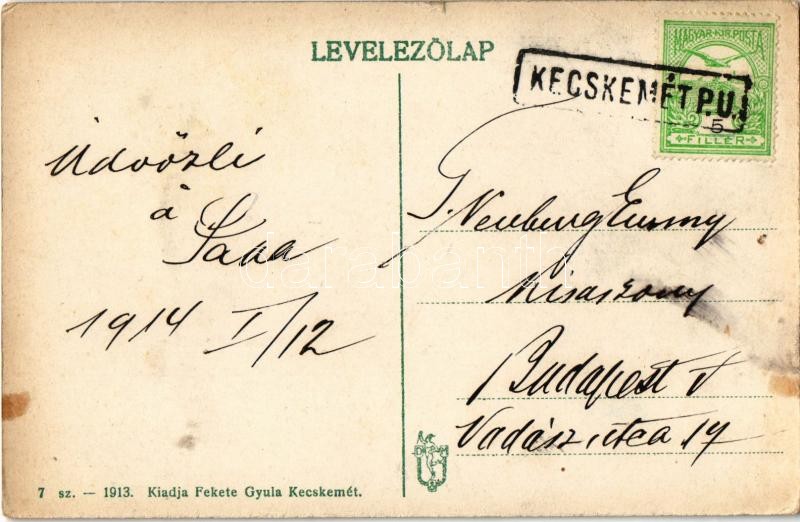 LEVELEZŐLAP
KECSKEMÉT P.U.
MAGYAR KIR. POSTA
5
FILLÉR
Üdvözli
a
Papa
1914 I/12
T. Neuburg Emmy
kisaszony
Budapest V
Vadász utca 17
7 sz. — 1913. Kiadja Fekete Gyula Kecskemét.
darabanth